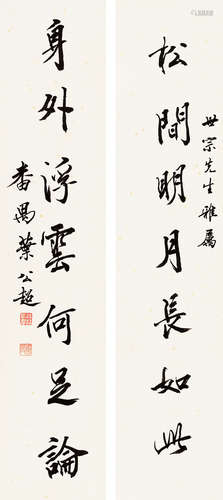 世宗先生雅屬
松間明月長如此
身外浮雲何足論
番禺葉公超